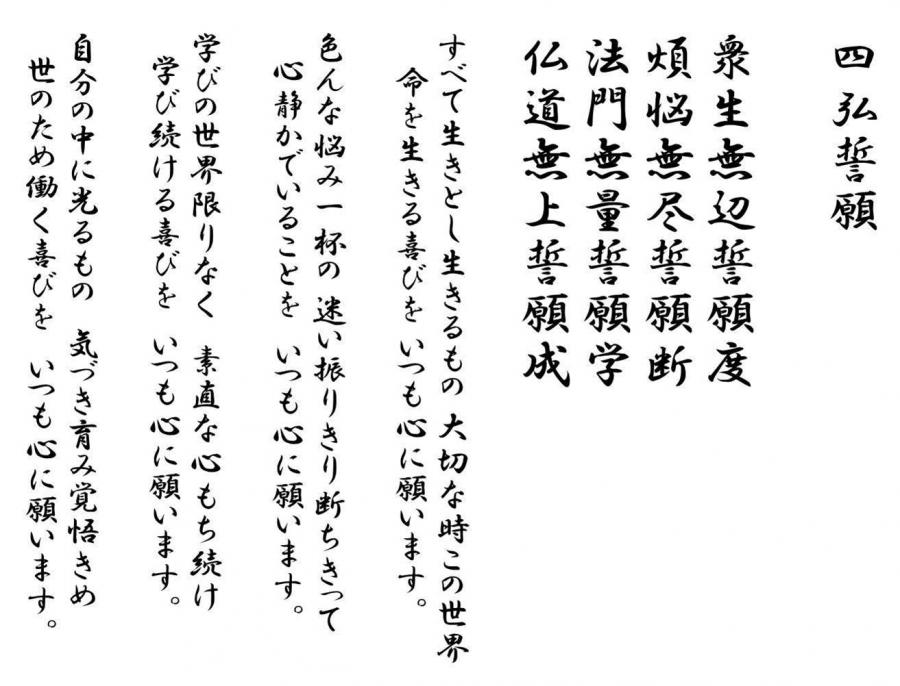 四弘誓願
衆生無辺誓願度
煩悩無尽誓願断
法門無量誓願学
仏道無上誓願成
すべて生きとし生きるもの 大切な時この世界
命を生きる喜びを いつも心に願います。
色んな悩み一杯の 迷い振りきり断ちきって
心静かでいることを いつも心に願います。
学びの世界限りなく 素直な心もち続け
学び続ける喜びを いつも心に願います。
自分の中に光るもの 気づき育み覚悟きめ
世のため働く喜びを いつも心に願います。